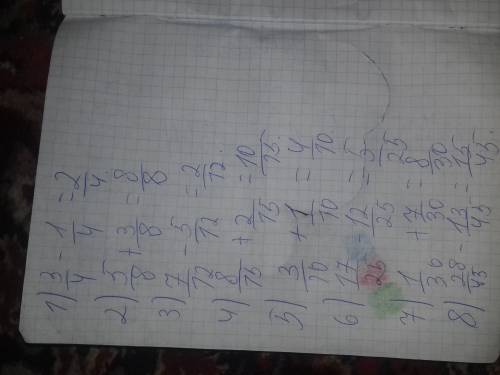 1) 3/4 - 1/4 = 2/4
2) 5/8 + 3/8 = 8/8
3) 7/12 - 5/12 = 2/12.
4) 8/15 + 2/15 = 10/15.
5) 3/10 + 1/10 = 4/10
6) 17/25 - 12/25 = 5/25
7) 1/30 + 7/30 = 8/30
8) 28/45 - 13/45 = 15/45.